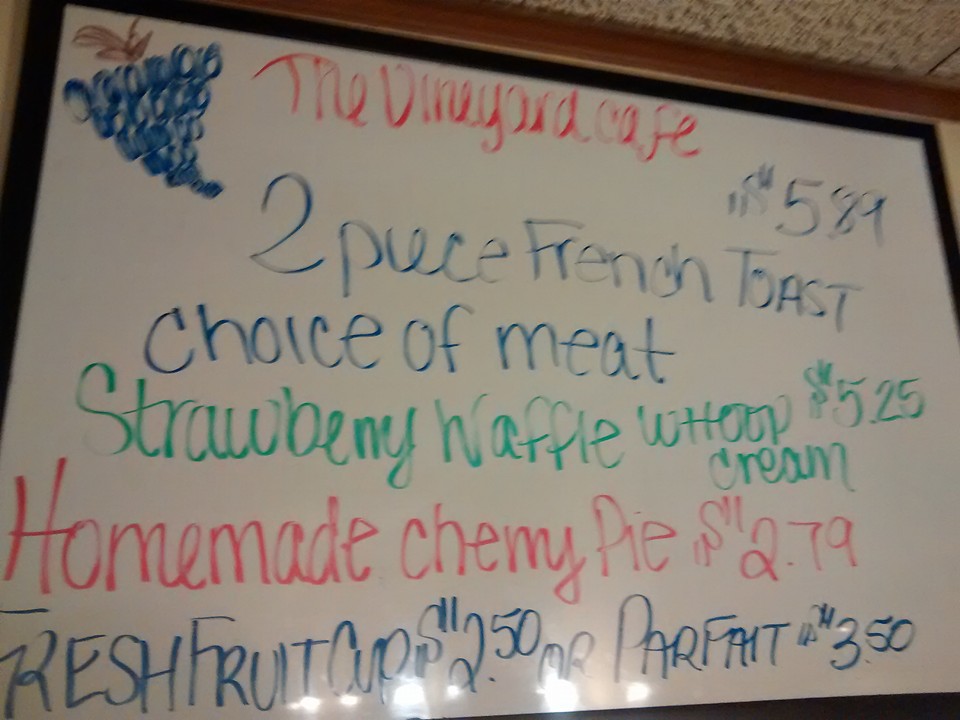 The Vineyard cafe
$5 89
2 piece French TOAST
choice of meat
Strawberry Waffle WHOOP $5.25
cream
Homemade cherry Pie $2.79
FRESH FRUIT CUP $2.50 OR PARFAIT $3.50